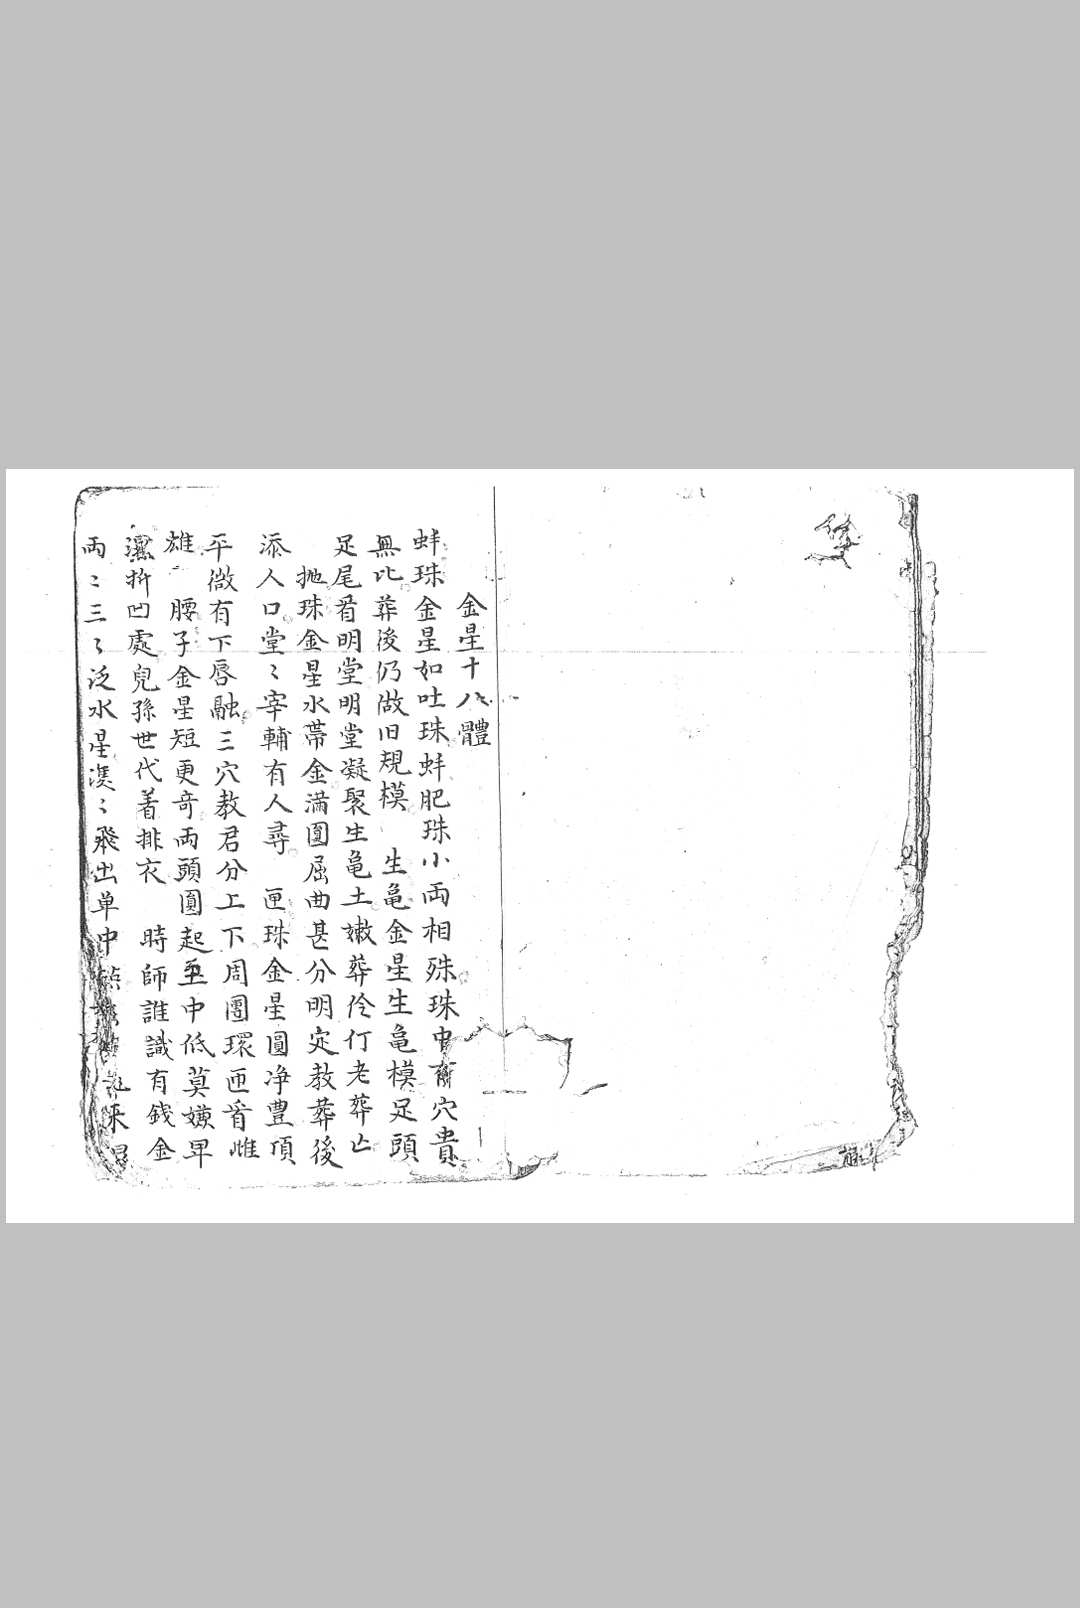 金星十八體
蚌珠金星如吐珠蚌肥珠小両相殊珠中有穴貴
無比葬後仍做旧規模 生亀金星生亀模足頭
足尾看明堂明堂凝聚生亀土嫩葬伶仃老葬亡
抛珠金星水帶金满圓屈曲甚分明定教葬後
添人口堂〻宰輔有人尋 匣珠金星圓净豊項
平微有下唇融三穴教君分上下周圍環匝看雌
雄 腰子金星短更奇両頭圓起至中低莫嫌旱
濕折凹處兒孫世代着排衣 時師誰識有錢金
両〻三〻泛水星溪〻飛出单中